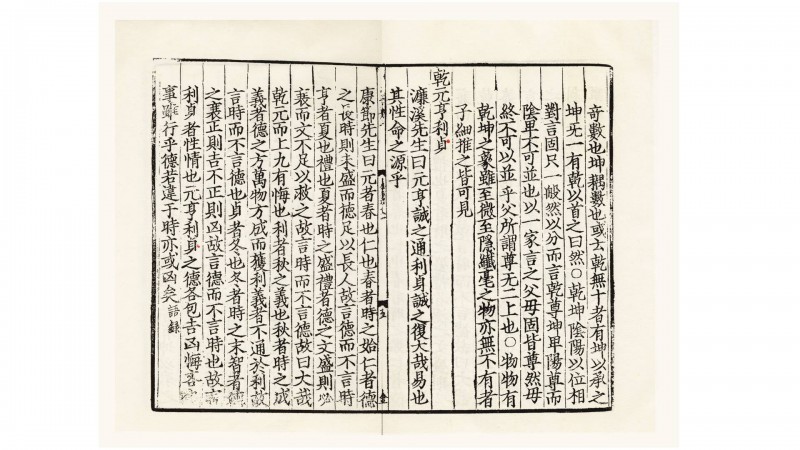 奇數也坤耦數也或云乾無十者有坤以承之
坤无一有乾以首之曰然〇乾坤陰陽以位相
對言固只一般然以分而言乾尊坤卑陽尊而
陰卑不可並也以一家言之父母固皆尊然母
終不可以並乎父所謂尊无二上也〇物物有
乾坤之象雖至微至隱纖毫之物亦無不有者
子細推之皆可見
乾元亨利貞
濂溪先生曰元亨誠之通利貞誠之復大哉易也
其性命之源乎
康節先生曰元者春也仁也春者時之始仁者德
之長時則未盛而德足以長人故言德而不言時
亨者夏也禮也夏者時之盛禮者德之文盛則必
衰而文不足以救之故言時而不言德故曰大哉
乾元而上九有悔也利者秋之義也秋者時之成
義者德之方萬物方成而獲利義者不通於利故
言時而不言德也貞者冬也冬者時之末智者德
之衰正則吉不正則凶故言德而不言時也故言
利貞者性情也元亨利貞之德各包吉凶悔吝之
事雖行乎德若違于時亦或凶矣語錄